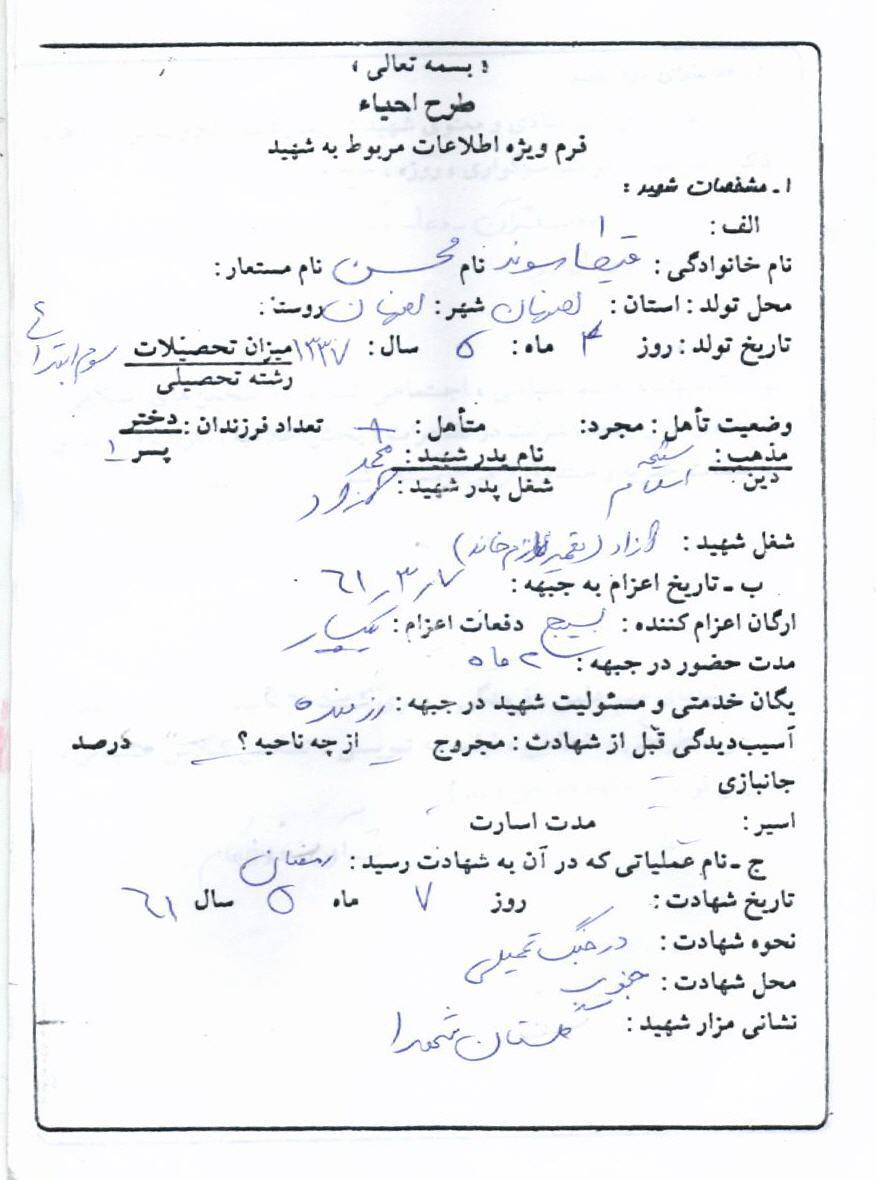 « بسمه تعالی »
طرح احیاء
فرم ویژه اطلاعات مربوط به شهید
۱ـ مشخصات شهید :
الف :
نام خانوادگی : قیطاسوند نام محسن نام مستعار :
محل تولد : استان : اصفهان شهر : اصفهان روستا :
تاریخ تولد : روز ۴ ماه : ۵ سال : ۱۳۳۷ میزان تحصیلات سوم ابتدائی
رشته تحصیلی
وضعیت تأهل : مجرد: متأهل : + تعداد فرزندان : دختر
مذهب : شیعه نام پدر شهید : محمد پسر ۱
دین : اسلام شغل پدر شهید :
شغل شهید : آزاد ( تعمیر لوازم خانه )
ب ـ تاریخ اعزام به جبهه : ۷ر۳ر۶۱
ارگان اعزام کننده : بسیج دفعات اعزام : یکبار
مدت حضور در جبهه : ۲ ماه
یگان خدمتی و مسئولیت شهید در جبهه : رزمنده
آسیب‌دیدگی قبل از شهادت : مجروح از چه ناحیه ؟ درصد
جانبازی
اسیر : مدت اسارت
ج ـ نام عملیاتی که در آن به شهادت رسید : رمضان
تاریخ شهادت : روز ۷ ماه ۵ سال ۶۱
نحوه شهادت : در جنگ تحمیلی
محل شهادت : جنوب
نشانی مزار شهید : گلستان شهدا